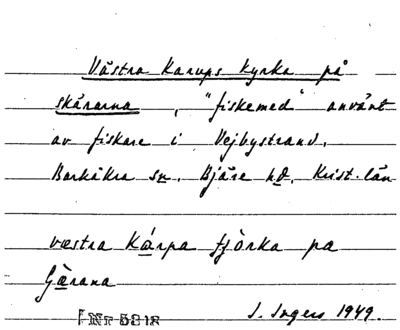 Västra Karups kyrka på
skärarna, "fiskemed" använt
av fiskare i Vejbystrand,
Barkåkra sn, Bjäre hd, Krist. län
væstra Kárpa fjòrka pa
Nr 5818
J. Ingers 1949.